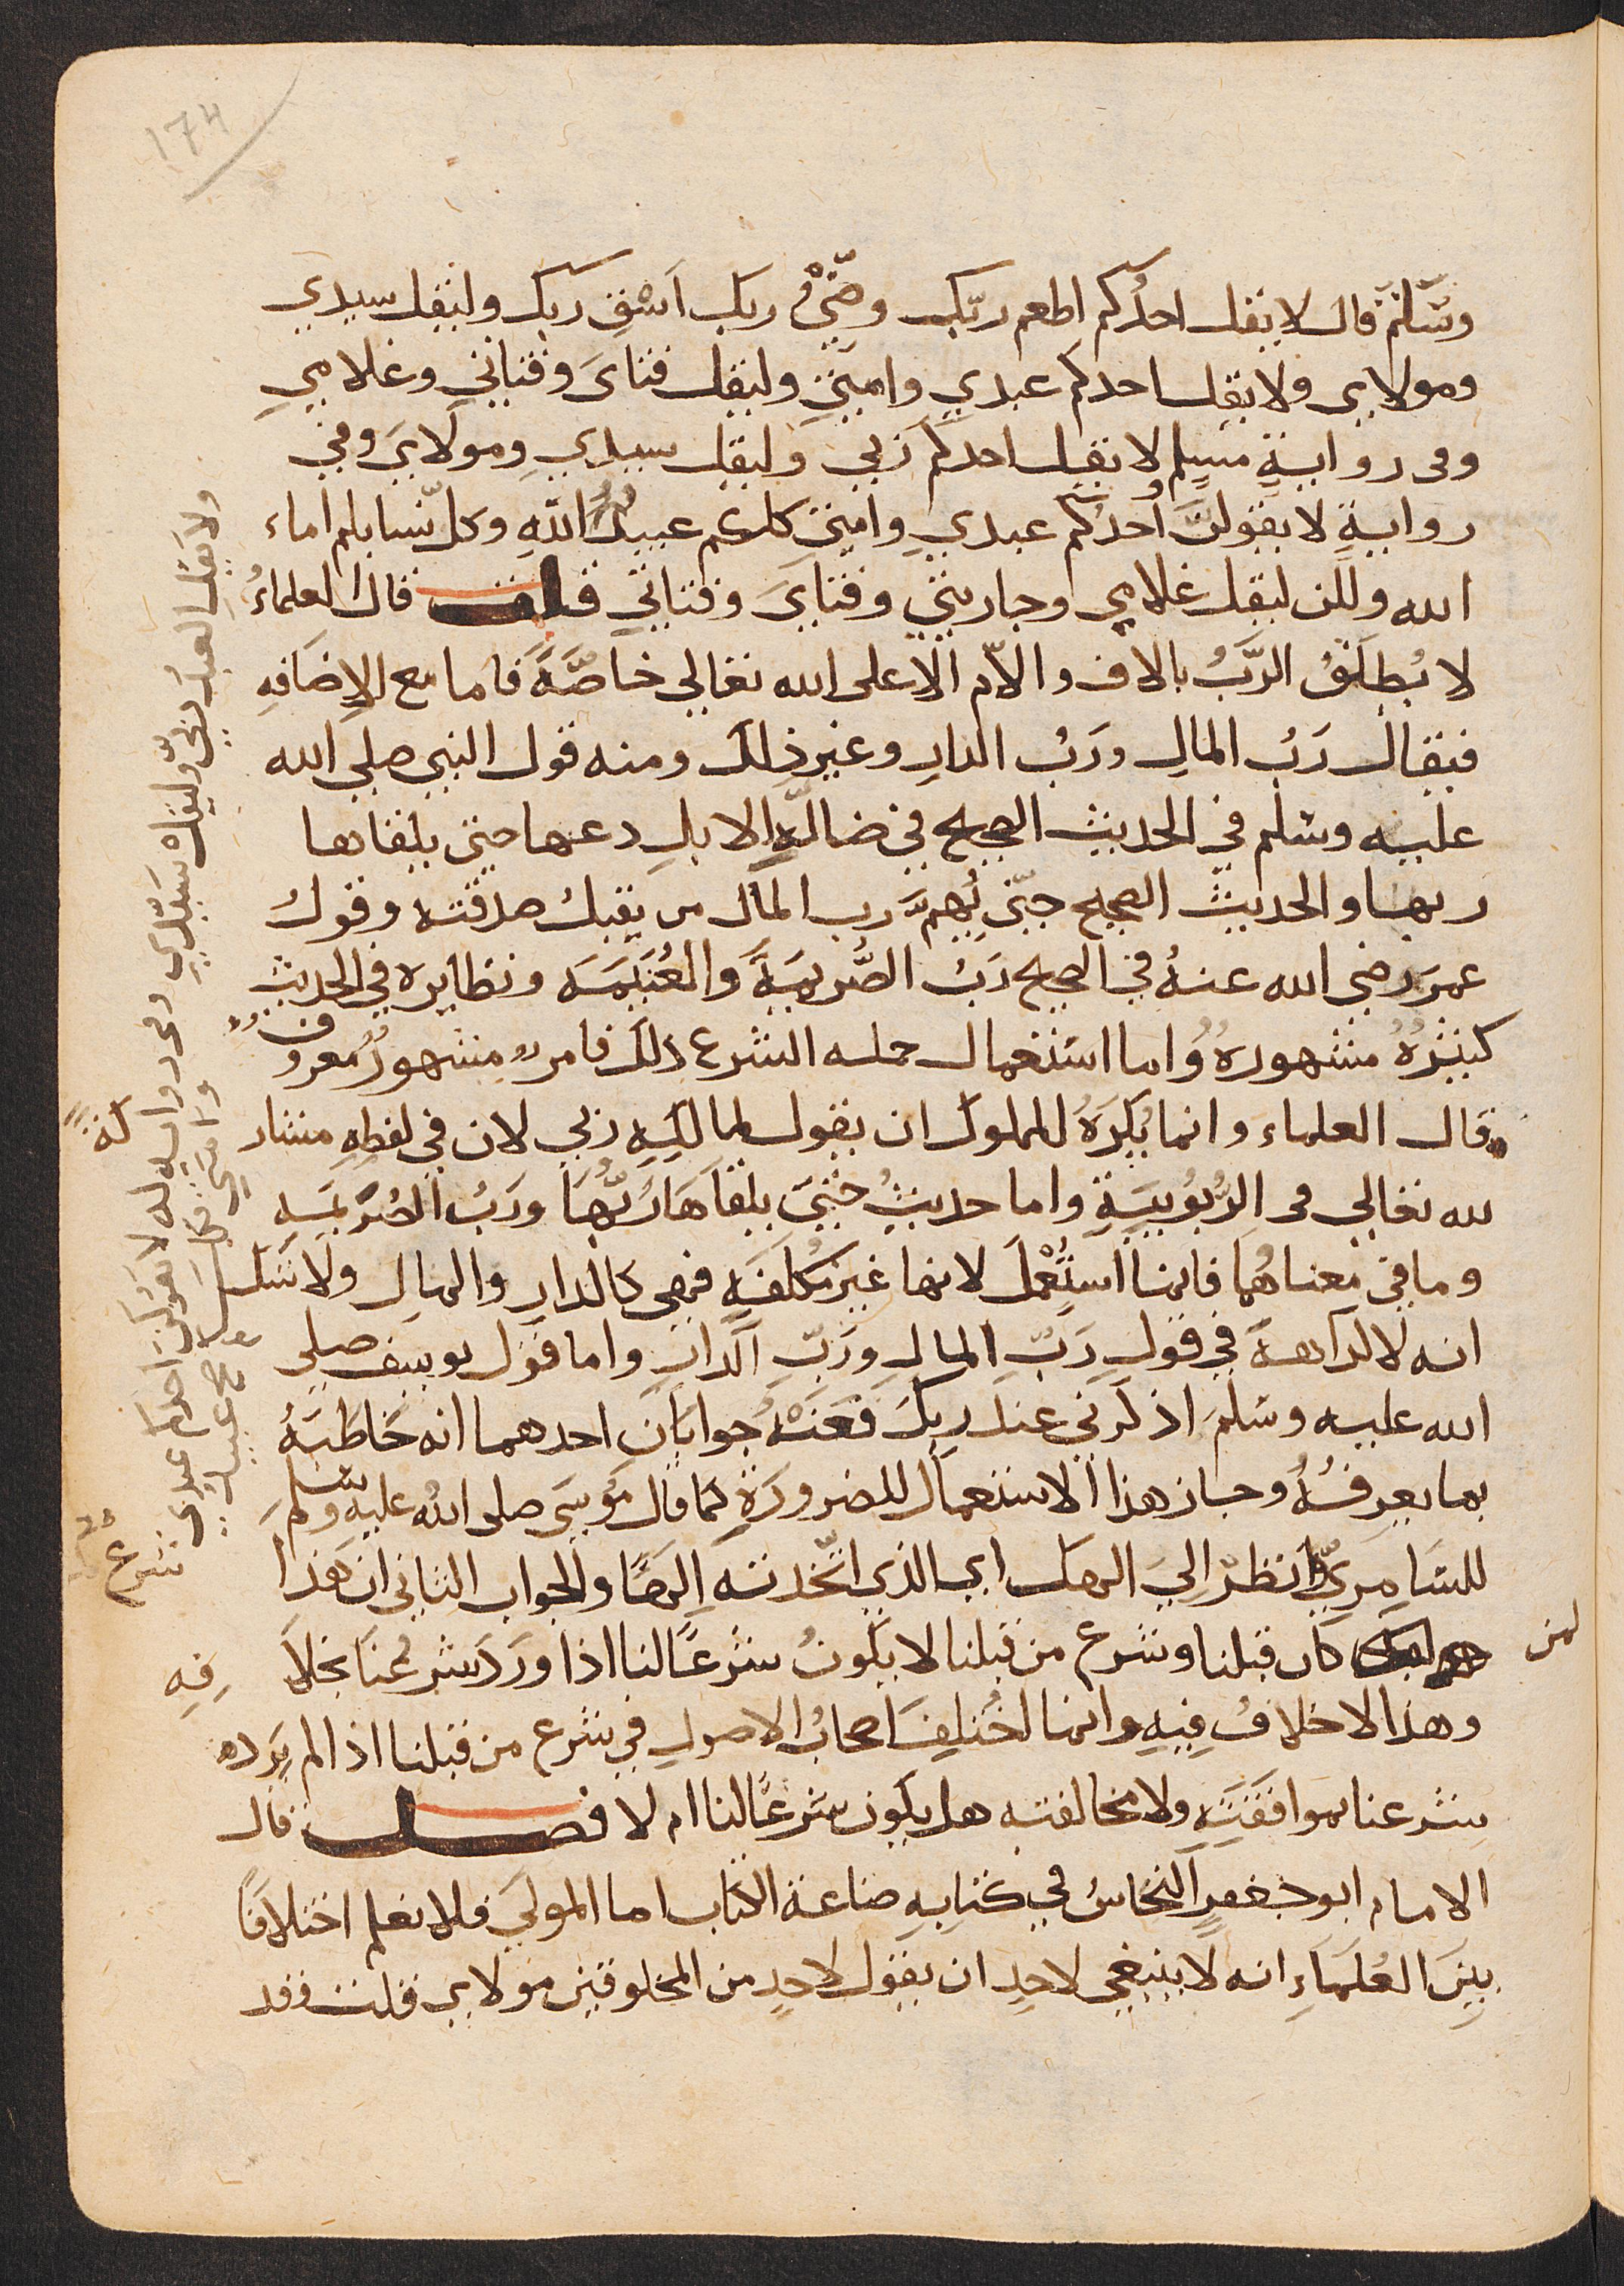 174
وسَلَّمَ قال لا يقل احدُكم اطعم ربّك وضِّئْ ربك اَسْقِ ربك وليقل سيدي
ومولاي ولا يقل احدكم عبدي وامتي وليقل فتايَ وفتاتي وغلامي
وفي رواية مسلم لا يقل احدكم ربي وليقل سيدي ومولايَ وفي
رواية لا يقولنَّ أحدُكم عبدي وامتي كلكم عبيدُ اللهِ وكل نسايكم اماء
الله ولكن ليقل غلامي وجاريتي وفتايَ وفتاتي قلت قال العلماءُ
لا يُطلَقُ الرَّبُ بالالف واللام الا على الله تعالى خاصَّةً فاما مع الإضافهِ
فيقال رَبُ المالِ ورَبُ الدارِ وغير ذلك ومنه قول النبي صلي الله
عليه وسلم في الحديث الصحيح في ضالَّةِ الابلِ دعها حتى يلقاها
ربها والحديث الصحيح حتّى يُهِمَّ رب المال من يقبل صدقته وقولُ
عمرَ رضي الله عنهُ في الصحيح رَبُ الصُّرَيمَةَ والغُنَيمَه ونظايره في الحديث
كثيرُهُ مشهورهُ واما استعمال حمله الشرع ذلك فامر مشهورٌ معروف
قال العلماء وانما يُكرَهُ للملوك ان يقول لمالكِهِ ربي لان في لفظِهِ مشار كةً
لله تعالي في الرُّبُوبيَةِ واما حديثُ حتى يلقاهَا رَبُّهَا ورَبُ الصُرَيمَهِ
وما في معناهُما فانما استُعْمِلَ لانها غيرَ مُكلفَهٍ فهي كالدارِ والمالِ ولا شك
انه لا كراهةَ في قولِ رَبِّ المالِ ورَبِّ الدارِ واما قول يوسف صلي
الله عليه وسلمَ اذكرني عند ربكَ فعَنْهُ جوابانِ احدهما انه خَاطَبَهُ
بما يعرِفُهُ وجاز هذا الاستعمال للضرورَةِ كما قال مُوسَى صلى اللهُ عليهِ وسلم
للسَّامِريِّ وانظرْ الِيَ الهك اي الذي اتّخذته اِلهًا والجواب الثاني ان هذا
شرع لمن كان قبلنا وشرع من قبلنا لا يكونُ شرعًا لنا اذا ورَدَ شرعُنَا بخلافِهِ
وهذا لا خلافُ فِيهِ وانما اختُلِفَ اصحابُ الاصولِ في شرع من قبلنا اذا لم يَرِد
شرعنا بموافَقَتِهِ ولا مخالفته هل يكون شرعًا لنا ام لا فصل قال
الامام ابو جَعفرٍ النحّاسُ في كتابِهِ صناعة الكتاب اما المولَي فلا نعلم اختلافًا
بينَ العُلَمَاءِ انه لا ينبغي لاحدٍ ان يقول لاحدٍ من المخلوقين مولاي قلت وقد
ولا يقلِ العبدُ ربي وليقل سَيِّدي وفي رواية له لا يقولن احدكم عبدي
وامتي فكلكم عبيد